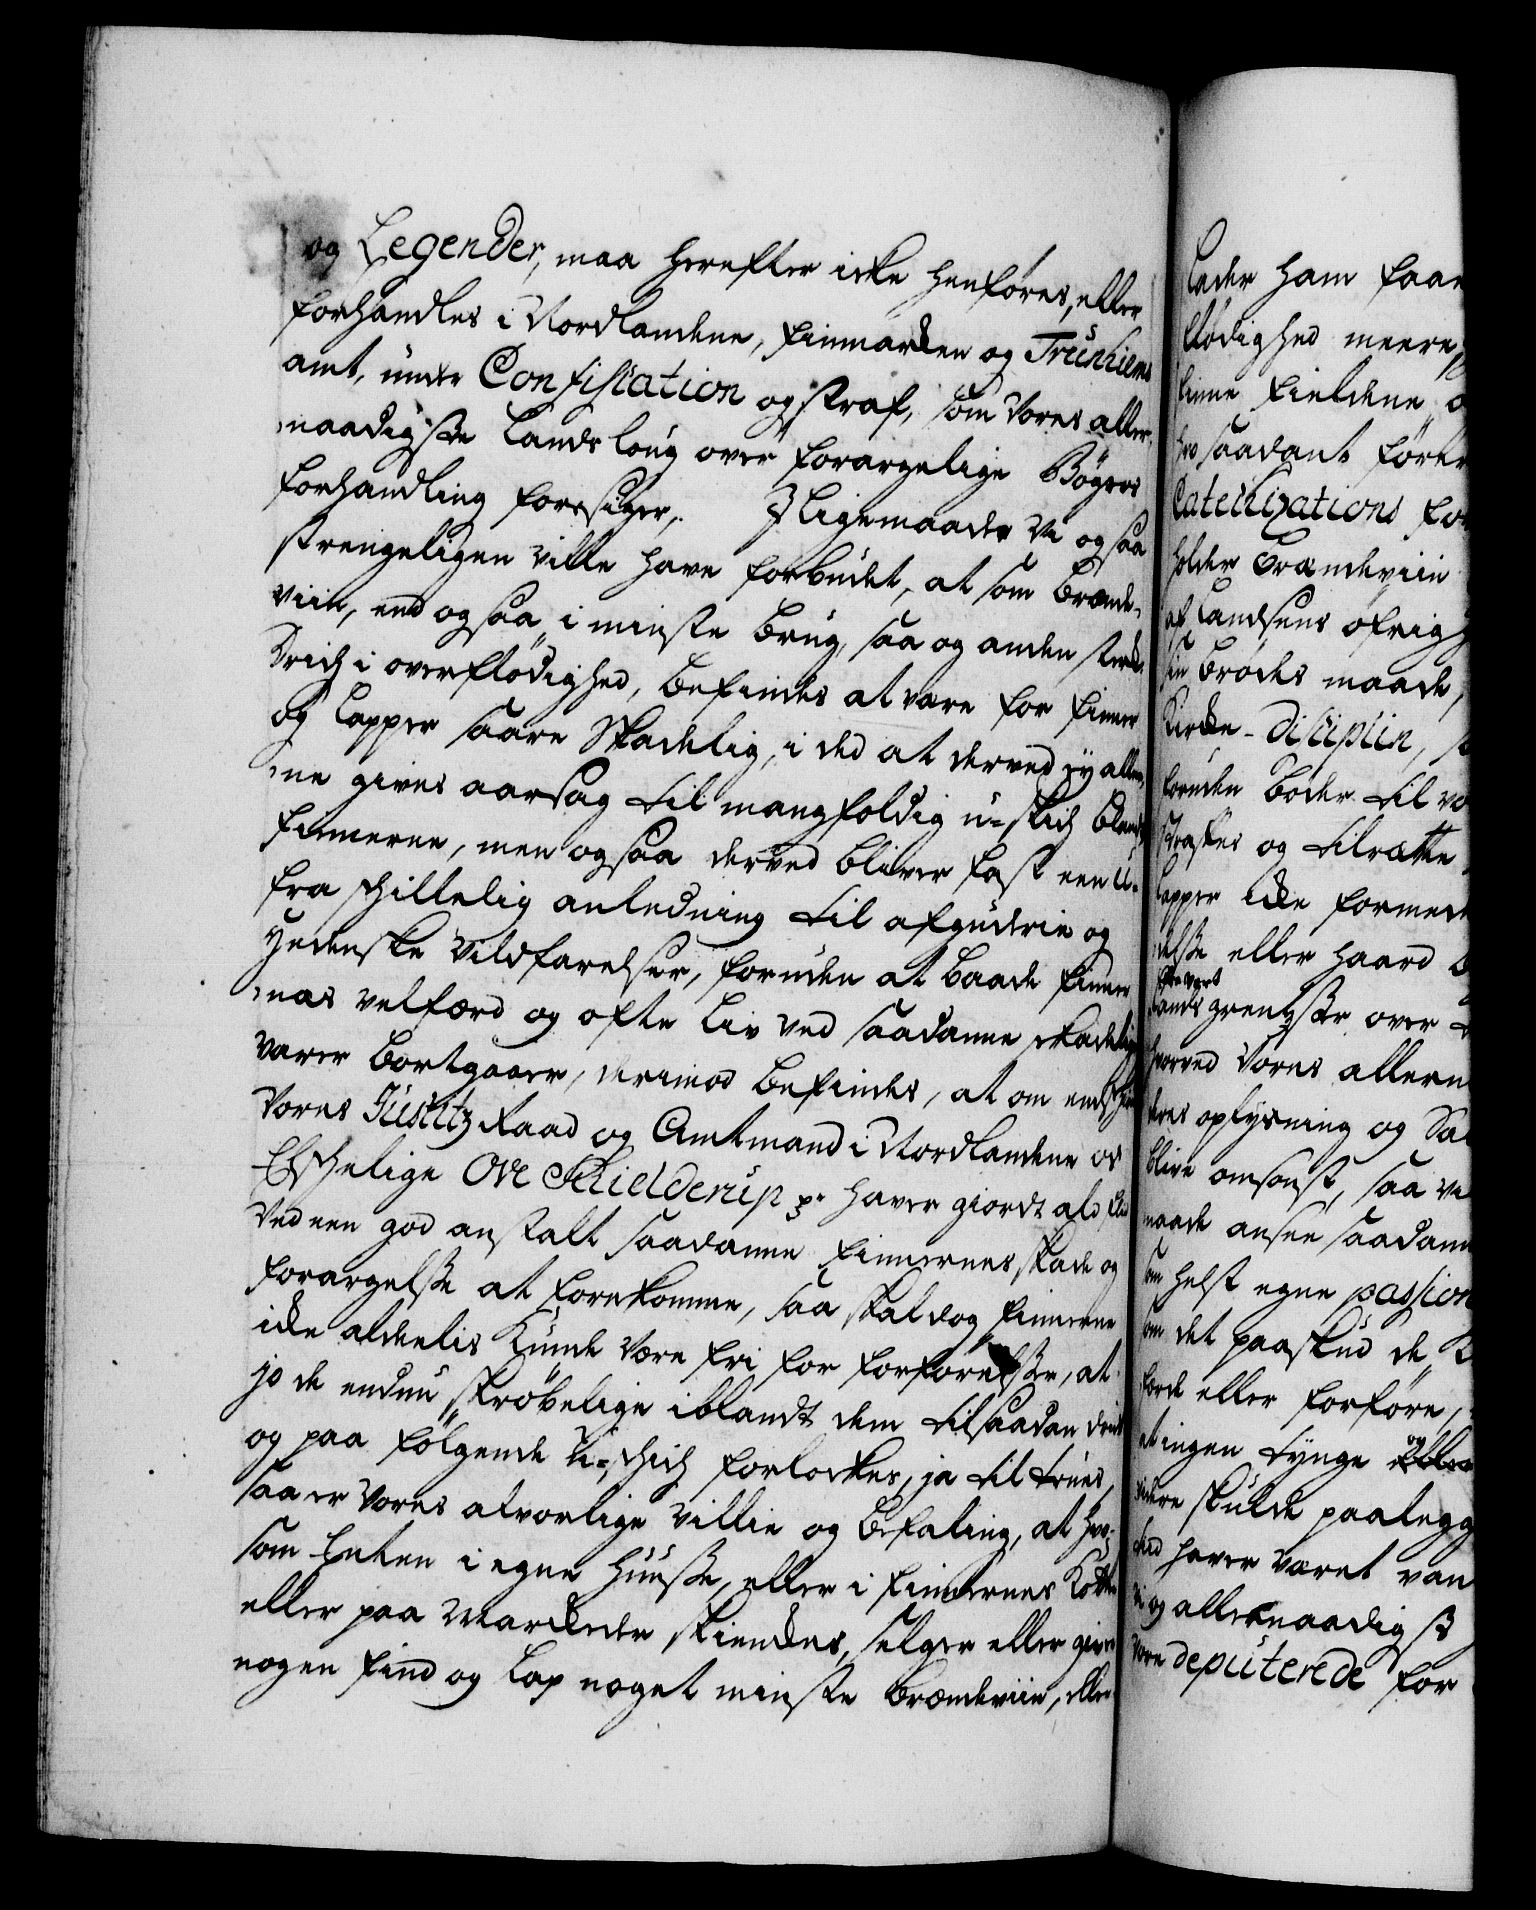 og Legender, maa herefter icke henføres, eller
forhandles i Nordlandene, Finmarcken og Trunhiems
amt, under Confiscation og straf, som Vores aller-
naadigste Lands loug over forargelige Bøgers
forhandling foresiger, I ligemaade Vi og saa
strengeligen Ville have forbudet, at som brænde-
viin, end og saa i minste brug, saa og anden sterck
Drich i overflødighed, befindes at være for Finner
og Lapper saare skadelig, i det at derved ey alle-
ne gives aarsag til mangfoldig u-skich blandt
Finnerne, men og saa derved bliver fast een u-
fraskillelig anledning til afguderie og
Hedenske Vildfarelser, foruden at baade Finner-
nes velfærd og ofte liv ved saadanne skadelige
Varer bortgaaer, derimod befindes, at om endskiønt
Vores Justitz Raad og Amtmand i Nordlandene os
Elskelige Ove Schielderup haver giordt ald flid
Ved een god anstalt saadanne Finnernes skade og
forargelsse at forekomme, saa skal dog Finnerne
icke aldeelis kunde være fri for forførelsse, at
jo de endnu skrøbelige iblandt dem til saadan drick
og paa følgende U-skich forlockes, ja til trues,
saa er Vores alvorlige Villie og befaling, at hvo
som Enten i egne Huusse, eller i Finnernes Kotter
eller paa Marckeder skiencker, selger eller giver
nogen Find og Lap noget minste brændeviin, eller
lader ham faae
flødighed meere
finne fieldene
hvo saadant fører
Catechizations
holder brændeviin
af Landsens øfrig
sin brødes maade,
Kircke-disciplin,
foruden bøder til
straffes og tilrætte
Lapper icke formed
delsse eller haard
Lands grentzser over
hvorved Vores allern
deres oplysning og
blive omsonst, saa
maade ansee saadan
som helst egne passion
om det paaskud de
forde eller forføre,
at ingen tynge og
skulde paalegg
haver været
og allernaadigst
Vore deputerede for